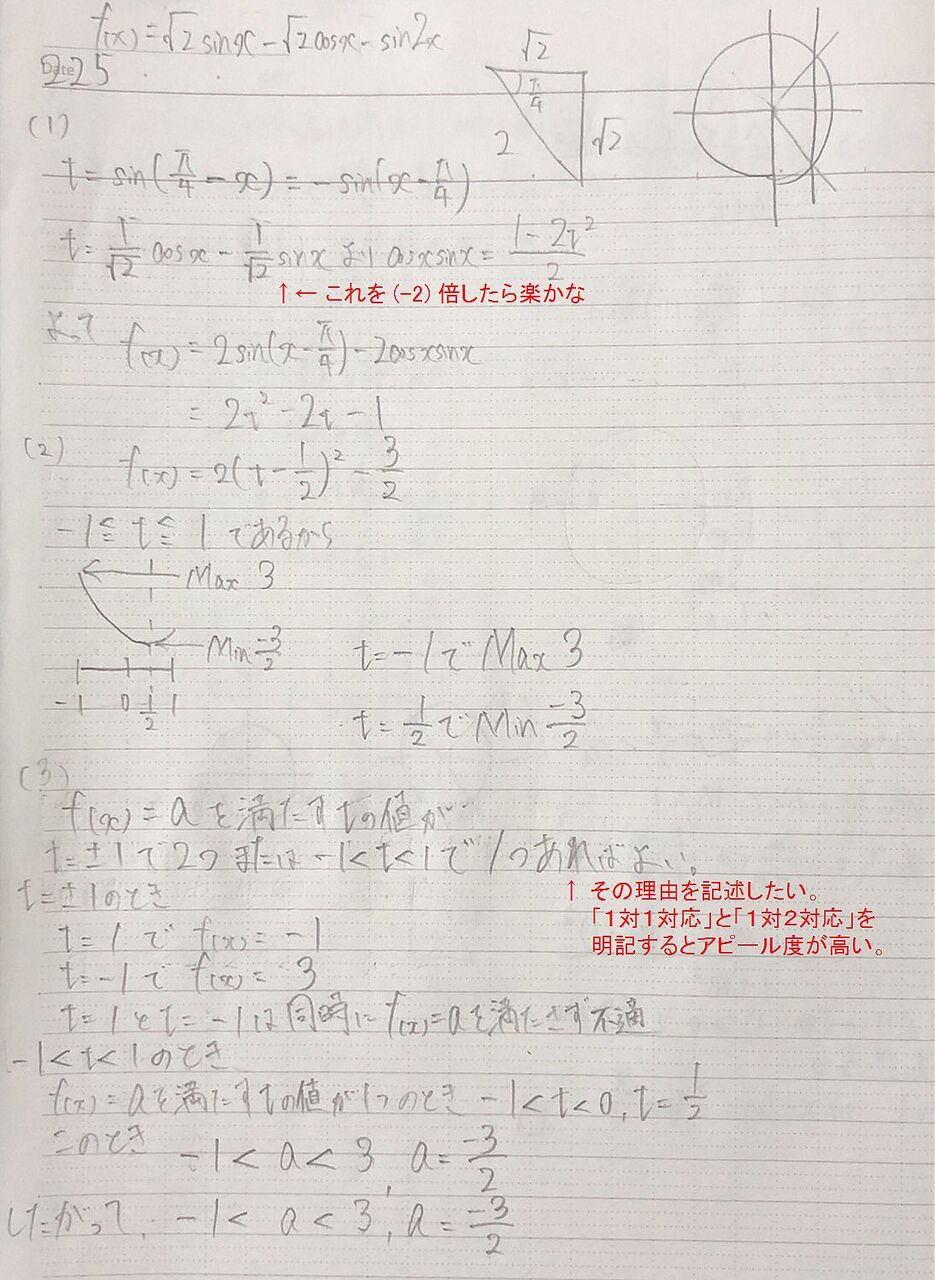 f(x) = √2 sinx - √2 cosx - sin2x
Date 225
√2
π/4
2
√2
(1)
t = sin(π/4 - x) = -sin(x - π/4)
t = 1/√2 cosx - 1/√2 sinx より cosxsinx = (1-2t²)/2
↑ ← これを (-2) 倍したら楽かな
よって f(x) = 2sin(x - π/4) - 2cosxsinx
= 2t² - 2t - 1
(2) f(x) = 2(t - 1/2)² - 3/2
-1 ≦ t ≦ 1 であるから
Max 3
Min -3/2
-1 0 1/2 1
t = -1 で Max 3
t = 1/2 で Min -3/2
(3)
f(x) = a を満たすtの値が
t = ±1 で 2つ または -1 < t < 1 で 1つあればよい。
↑ その理由を記述したい。
「1対1対応」と「1対2対応」を
明記するとアピール度が高い。
t = ±1のとき
t = 1 で f(x) = -1
t = -1 で f(x) = 3
t = 1 と t = -1 は同時に f(x) = a を満たさず不適
-1 < t < 1 のとき
f(x) = a を満たすtの値が1つのとき -1 < t < 0, t = 1/2
このとき -1 < a < 3, a = -3/2
したがって、-1 < a < 3, a = -3/2